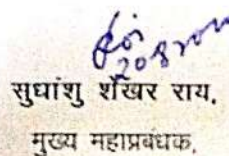 सुधांशु शेखर राय,
मुख्य महाप्रबंधक,